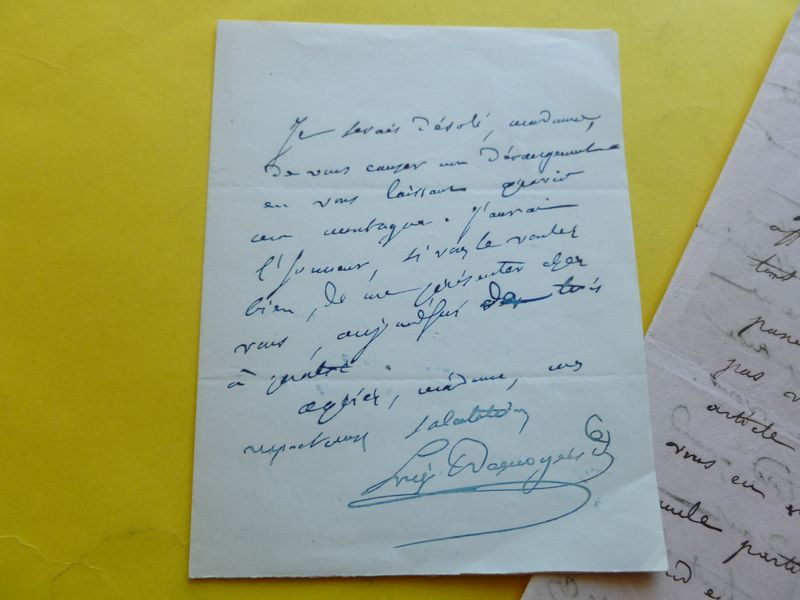 Je serais désolé, madame,
de vous causer un dérangement
en vous laissant gravir
une montagne. J'aurai
l'honneur, si vous le voulez
bien, de me présenter chez
vous, aujourd'hui de trois
à quatre.
agréez, madame, mes
respectueuses salutations
tout
pas
article
vous en